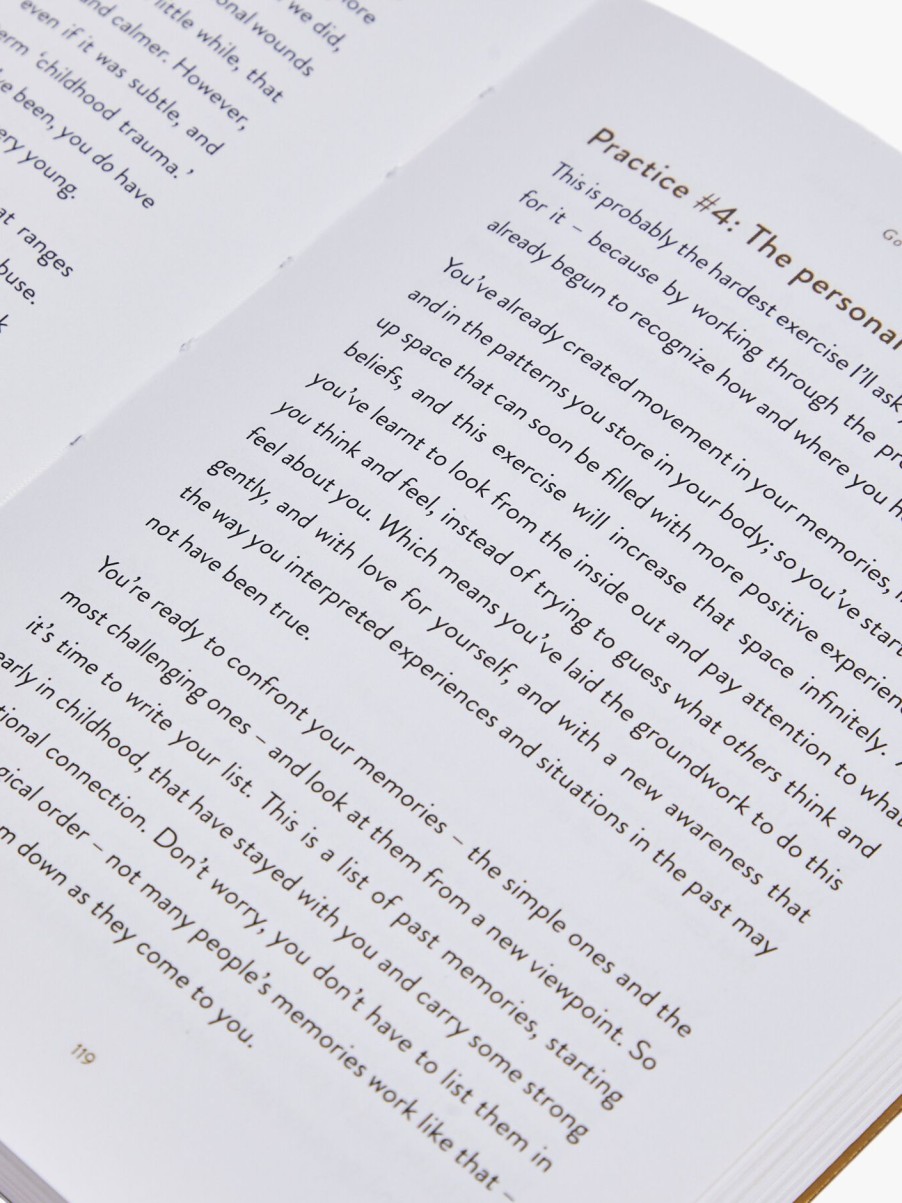 ore
we did,
onal wounds
little while, that
and calmer. However,
even if it was subtle, and
erm ‘childhood trauma.’
’ve been, you do have
ery young.
at ranges
buse.
k
Go
Practice #4: The personal
This is probably the hardest exercise I’ll ask
for it – because by working through the pr
already begun to recognize how and where you h
You’ve already created movement in your memories,
and in the patterns you store in your body; so you’ve start
up space that can soon be filled with more positive experien
beliefs, and this exercise will increase that space infinitely.
you’ve learnt to look from the inside out and pay attention to what
you think and feel, instead of trying to guess what others think and
feel about you. Which means you’ve laid the groundwork to do this
gently, and with love for yourself, and with a new awareness that
the way you interpreted experiences and situations in the past may
not have been true.
You’re ready to confront your memories – the simple ones and the
most challenging ones – and look at them from a new viewpoint. So
it’s time to write your list. This is a list of past memories, starting
early in childhood, that have stayed with you and carry some strong
tional connection. Don’t worry, you don’t have to list them in
gical order – not many people’s memories work like that –
m down as they come to you.
119